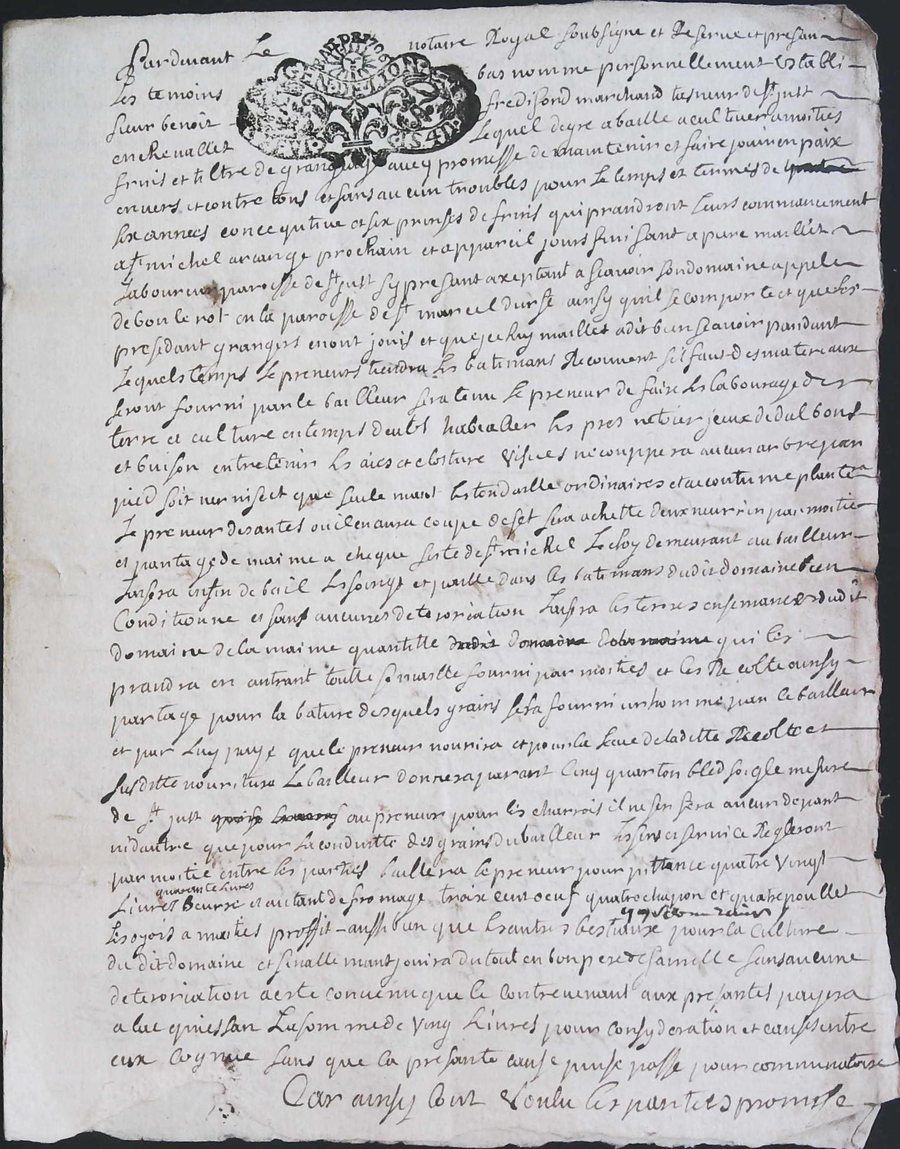 Pardevant Le notaire Royal soubsigne et Reserve et presan
Les temoins bas nomme personnellement Estably
sieur benoit fredisond marchand taneur de st just
en chevallet Lequel de gre a baille a cultiver a moities
fruis et tiltre de grangeage avec promesse de maintenir et faire jouir en paix
envers et contre tous et sans aucun troubles pour Le temps et termes de
six annees consequtive et six prinses de fruis qui prandront Leurs commancement
a st michel arcange prochain et a pareil jours finissant a pierre maillet
Laboureur paroisse de st just sy presant axeptant a scavoir son domaine appele
de bouterot en la paroisse de st marcel durfe ainsy quil se comporte et que les
presedant grangers en ont jouis et que je luy maillet a dit bien scavoir pandant
Lequels temps Le preneurs tiendra les batimans Recouvert sil faut des matereaux
seront fourni par le bailleur sera tenu Le preneur de faire les labourage des
terre et culture en temps deubt les pres netoier jeux de dal bond
et buison entretenir les aies et closture visves ne couppera aucun arbre par
pied soit vernis que seulemant les tendaille ordinaires et accoutume plantera
Le preneur des antes ou il en aura coupe
et partage de maime a cheque feste de st michel Le demeurant au bailleur
Laisera en fin de bail Les foings et paille dans les batimans du dit domaine bien
Conditionne et sans aucunes deterioriation Laisra les terres ensemance du dit
domaine de la maime quantitte qui les
prandra en antrant toutte semaille fourni par moities et les Recolte ainsy
partage pour la bature desquels grains sera fourni un homme par le bailleur
et par Luy paye que le preneur nourira et pour la leve de la ditte Recolte et
susditte nouriture Le bailleur donnera par ant Cinq quarton bled soigle mesure
de st just au preneur pour les charrois il ne sen fera aucun de part
ni dautre que pour la conduitte des grains du bailleur Les sens et service Regleront
par moitie entre les parties baillera le preneur pour pittance quatre vingt
quarante livres
Livres Beurre et autant de fromage troix cent oeuf quatre chapon et quatre poullet
Les oyois a moities proffit aussi bien que les autres bestiaux pour la culture
du dit domaine et finallemant jouira du tout en bon pere de famille sans aucune
deterioriation a este convenu que le contrevenant aux presantes payera
a lacquiessan La somme de vingt Livres pour consyderation et causes entre
eux Cognue sans que la presante cause puise passe pour comminatoire
Car ainsy Lont Voulu les parties promise